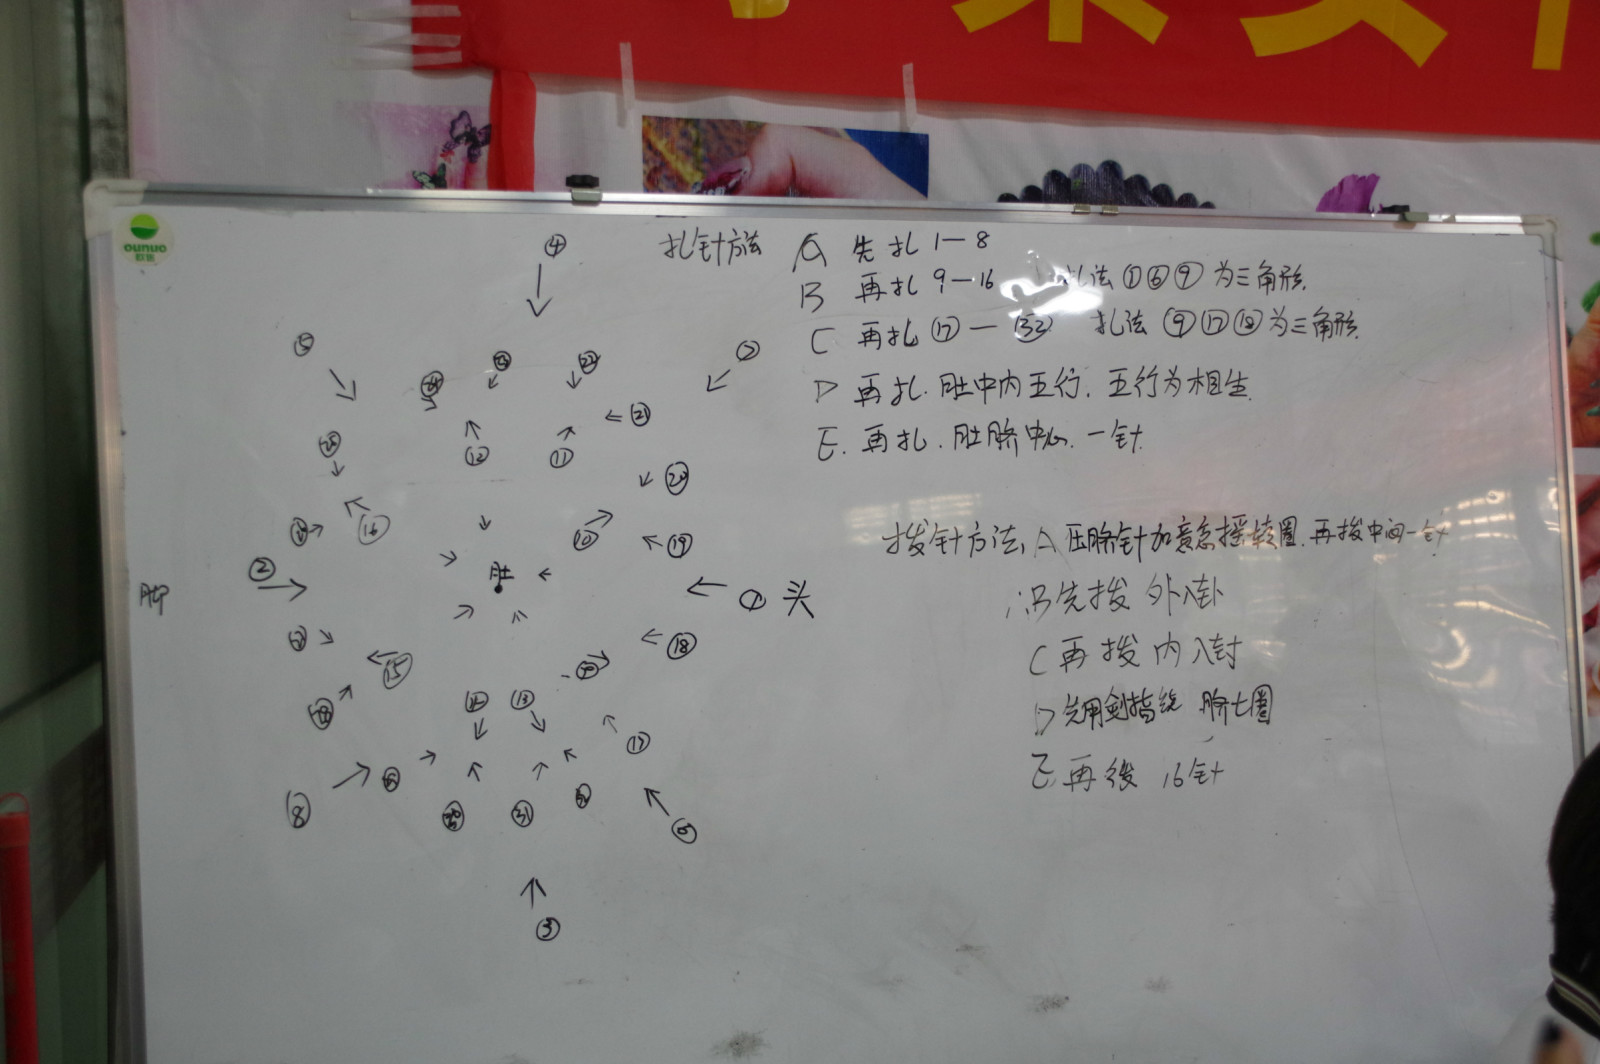 ounuo
扎针方法 A 先扎 1—8
B 再扎 9—16 扎法 ①⑥⑨ 为三角形.
C 再扎 ⑰—㉜ 扎法 ⑨⑰⑱ 为三角形.
D 再扎.肚中内五行.五行为相生.
E.再扎.肚脐中心.一针.
拨针方法, A 压脐针加意念摇转圈.再拨中间一针
B 先拨 外八卦
C 再拨 内八封
D 先用剑指绕 脐七圈
E 再拨 16针
④
⑤
⑦
㉓
㉒
㉔
㉑
⑫
⑪
㉕
⑳
⑯
⑩
⑲
②
肚
① 头
⑱
⑮
⑬
⑰
⑧
㉛
⑥
③